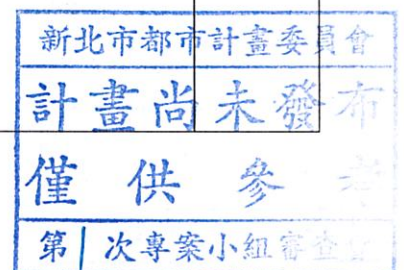 新北市都市計畫委員會
計畫尚未發布
僅供參考
第1次專案小組審查